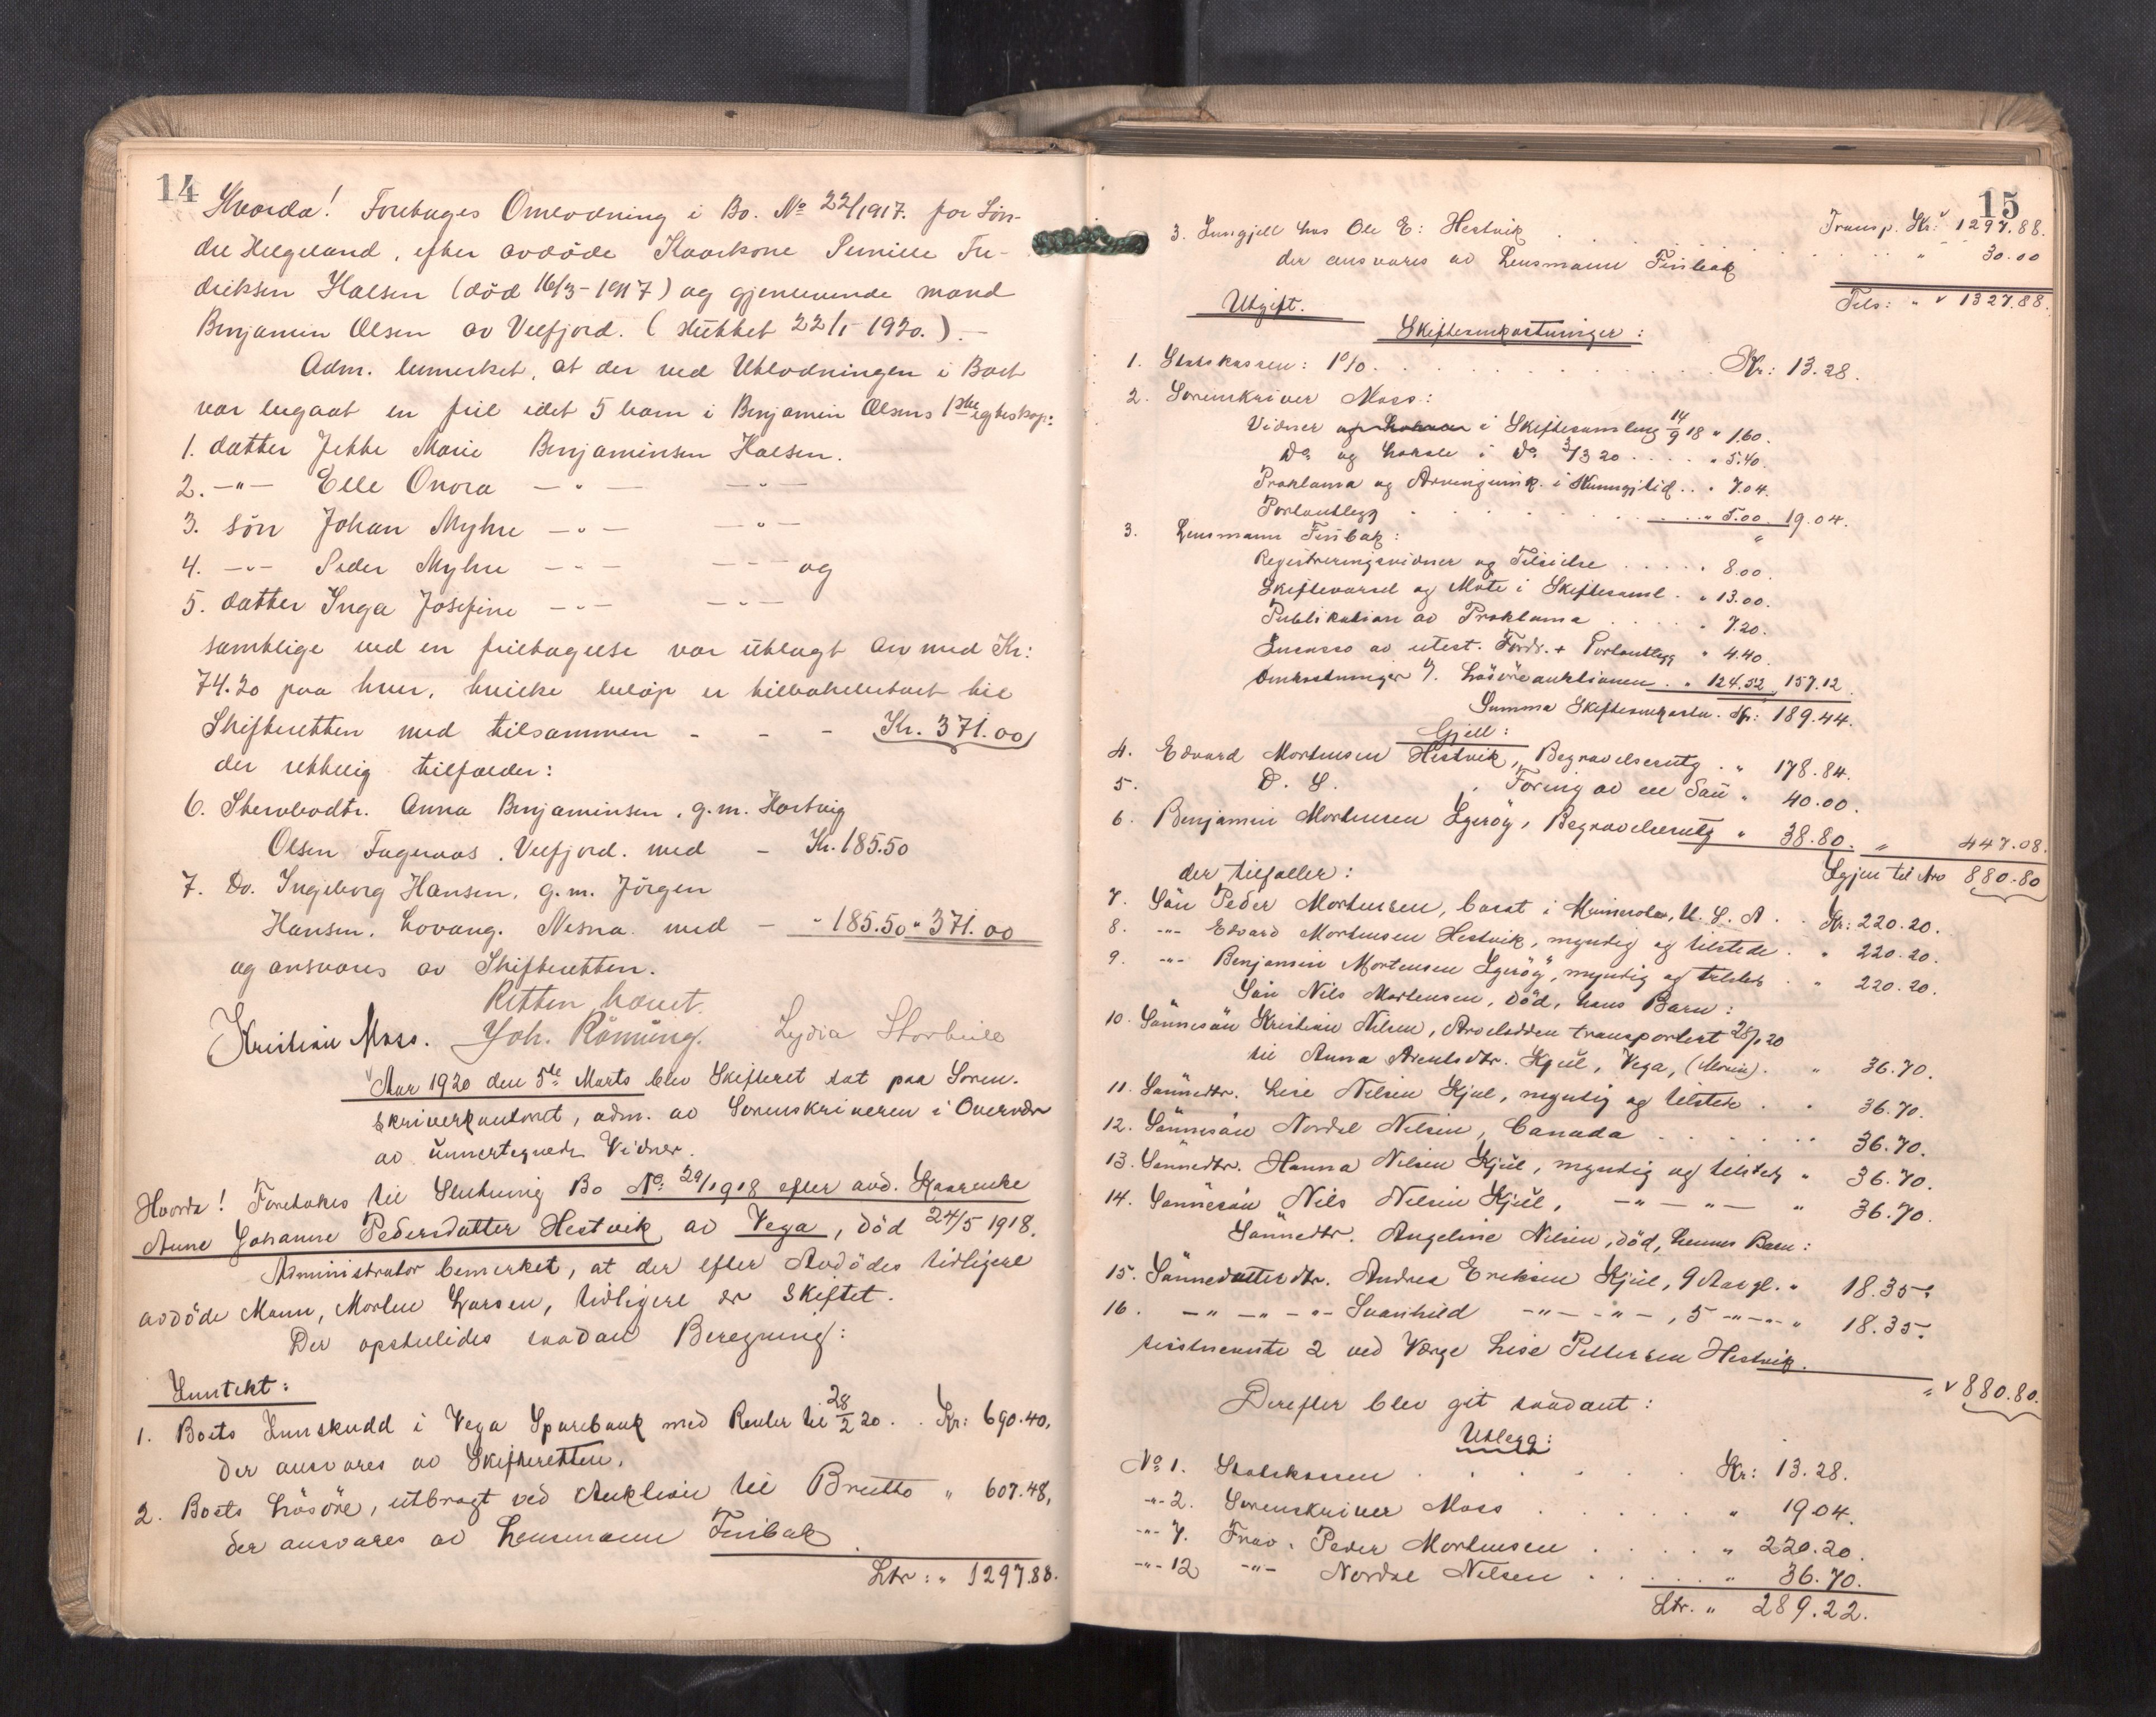 14
Hvorda! Foretages Omlodning i Bo. No 22/1917. for Søn-
dre Helgeland, efter avdöde Kaarkone Pernille Fre-
driksen Halsen (död 16/3-1917) og gjenlevende mand
Benjamin Olsen av Velfjord. (sluttet 22/1-1920.) -
Adm. bemerket, at der ved Utlodningen i Boet
var begaat en feil idet 5 barn i Benjamin Olsens 1ste egteskap:
1. datter Jekke Marie Benjaminsen Halsen.
2. -"- Elle Onora -"- -"-
3. sön Johan Myhre -"- -"-
4. -"- Peder Myhre -"- -"- og
5. datter Inga Josefine -"- -"-
samtlige ved en feiltagelse var utlagt arv med Kr:
74.20 paa hver, hvilke belöp er tilbakebetalt til
Skifteretten med tilsammen - - - Kr. 371.00
der rettelig tilfalder:
6. Stervbodtr. Anna Benjaminsen, g.m. Hartvig
Olsen Fagernes. Velfjord. med - Kr. 185.50
7. Do. Ingeborg Hansen, g.m. Jörgen
Hansen. Lovang. Nesna med - " 185.50 " 371.00
og ansvares av Skifteretten.
Retten hævet.
Kristian Moss. Joh. Rönning. Lydia Storbeile
Aar 1920 den 5te Marts blev Skifteret sat paa Soren-
skriverkontoret, adm. av Sorenskriveren i Overvær
av unnertegnede Vidner.
Hvorda! Foretokes til Slutning Bo No: 29/1918 efter avd. Kaarenke
Anne Johanne Pedersdatter Hestvik av Vega, död 24/5 1918.
Administrator bemerket, at der efter Avdödes tidligere
avdöde Mann, Morten Larsen, tidligere er Skiftet.
Der opstilledes saadan Beregning:
Inntekt:
1. Boets Innskudd i Vega Sparebank med Renter til 28/2 20. . Kr: 690.40,
der ansvares av Skifteretten.
2. Boets Lösöre, utbragt ved Auktion til Brutto " 607.48,
der ansvares av Lensmann Finbak.
Ltr: " 1297.88.
15
Transp. Kr: 1297.88.
3. Inngjell hos Ole E: Hestvik
der ansvares av Lensmann Finbak . . . " 30.00
Tils: " 1327.88.
Utgift.
Skifteomkostninger:
1. Statskassen: 1% . . . Kr: 13.28.
2. Sorenskriver Moss:
Vidner og Lokale i Skiftesamling 14/9 18 " 1.60.
Do og Lokale i Do 5/3 20 . . . " 5.40.
Proklama og Arvingeink. i Kunngjtid . . " 7.04.
Portoutlegg . . . " 5.00 " 19.04.
3. Lensmann Finbak:
Registreringsvidner og Tilsielse . . . " 8.00.
Skiftevarsel og Möte i Skiftesaml. " 13.00.
Publikation av Proklama . . . " 7.20.
Incasso av utest. Fordr. + Portoutlegg " 4.40.
Omkostninger v/. Lösöreauktionen . " 124.52 " 157.12.
Summa Skifteomkostn. Kr: 189.44.
Gjell:
4. Edvard Mortensen Hestvik, Begravelsesutg. " 178.84.
5. D. S. , Foring av en Sau " 40.00.
6. Benjamin Mortensen Igeröy, Begravelsesutg " 38.80. " 447.08.
Igjen til Arv 880.80
der tilfaller:
7. Sön Peder Mortensen, bosat i Minnesota, U. S. A. . Kr: 220.20.
8. -"- Edvard Mortensen Hestvik, myndig og tilstede . " 220.20.
9. -"- Benjamin Mortensen Igeröy, myndig og tilstede . " 220.20.
Sön Nils Mortensen, död, hans Barn:
10. Sönnesön Kristian Nilsen, Arvelodden transportert 28/1 20
til Anna Arentsdtr. Kjul, Vega, (Moren). " 36.70.
11. Sönnedtr. Lise Nilsen Kjul, myndig og tilstede . . 36.70.
12. Sönnesön Nordal Nilsen, Canada . . . 36.70.
13. Sönnedtr. Hanna Nilsen Kjul, myndig og tilstede " 36.70.
14. Sönnesön Nils Nilsen Kjul, -"- "- " 36.70.
Sönnedtr. Angeline Nilsen, död, hennes Barn:
15. Sönnedatterdtr. Andrea Eriksen Kjul, 9 Aar gl. " 18.35.
16. -"- -"- -"- Svanhild -"- -"-, 5 -"- -"- " 18.35.
sistnevnte 2 ved Værge Lise Pettersen Hestvik.
" 880.80.
Derefter blev git saadant:
Utlegg:
No 1. Statskassen . . . Kr: 13.28.
-"- 2. Sorenskriver Moss . . . " 19.04.
-"- 7. Frav. Peder Mortensen . . . " 220.20.
-"- 12 -"- Nordal Nilsen . . . " 36.70.
Ltr. " 289.22.